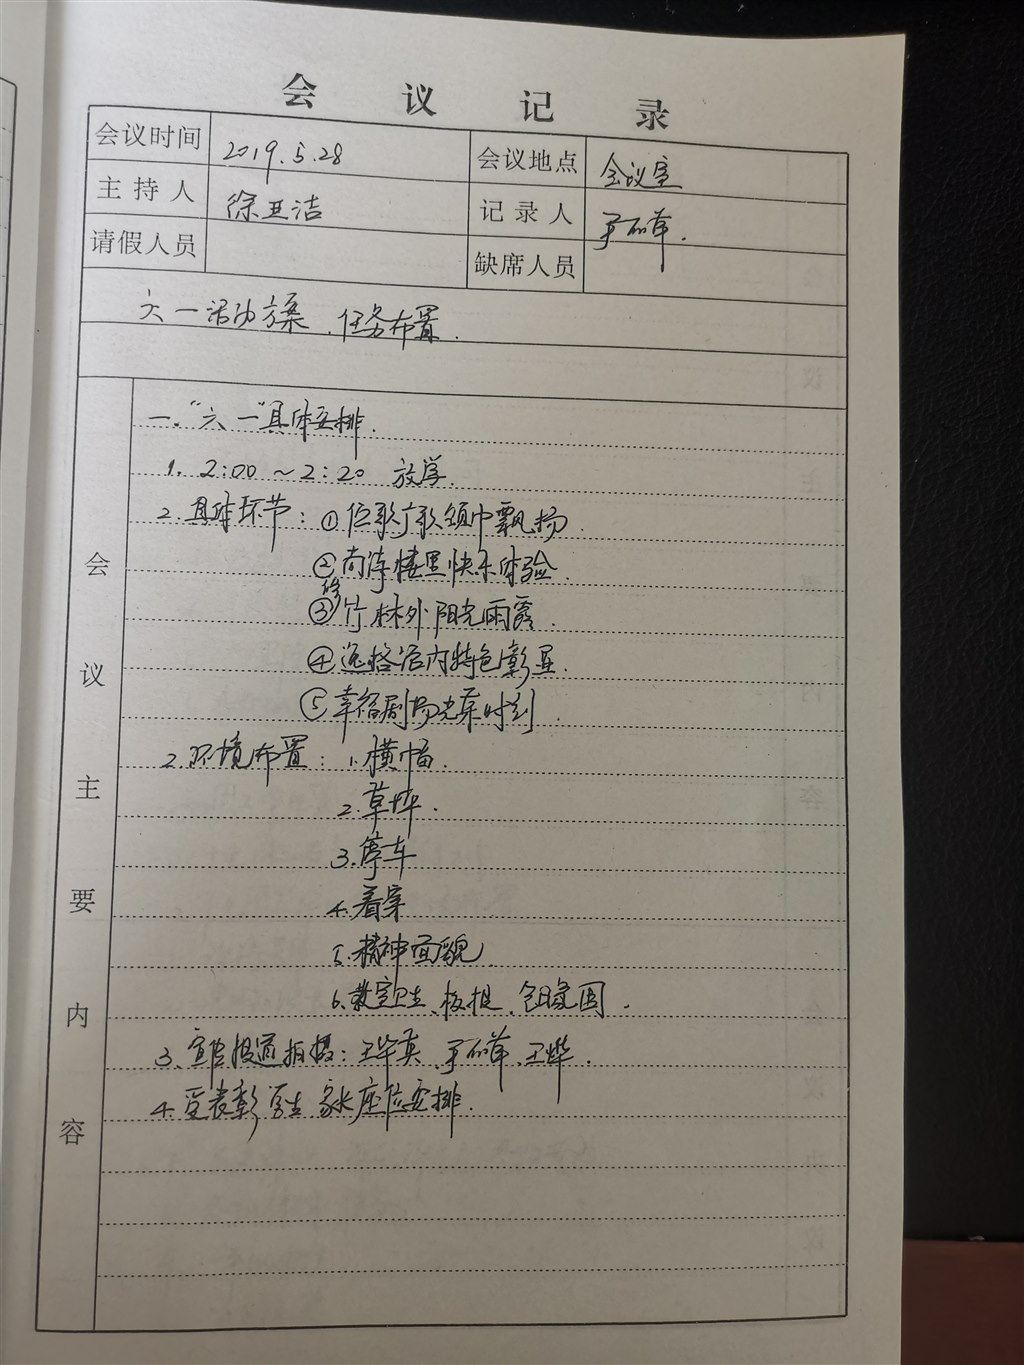 会议记录
会议时间 2019.5.28 会议地点 会议室
主持人 徐卫洁 记录人
请假人员 缺席人员
六一活动方案、任务布置.
会议主要内容
一."六一"具体安排.
1. 2:00～2:20 放学.
2.具体环节: ①弦歌广歌领巾飘扬.
②尚淳楼里快乐体验.
③修竹林外阳光雨露.
④逸格居内特色彰显.
⑤幸福剧场光荣时刻.
2.环境布置: 1.横幅.
2.草坪.
3.停车
4.着穿
5.精神面貌
6.教室卫生、板报、包干区.
3.宣传报道拍摄: 王华英、王烨.
4.受表彰学生家长座位安排.